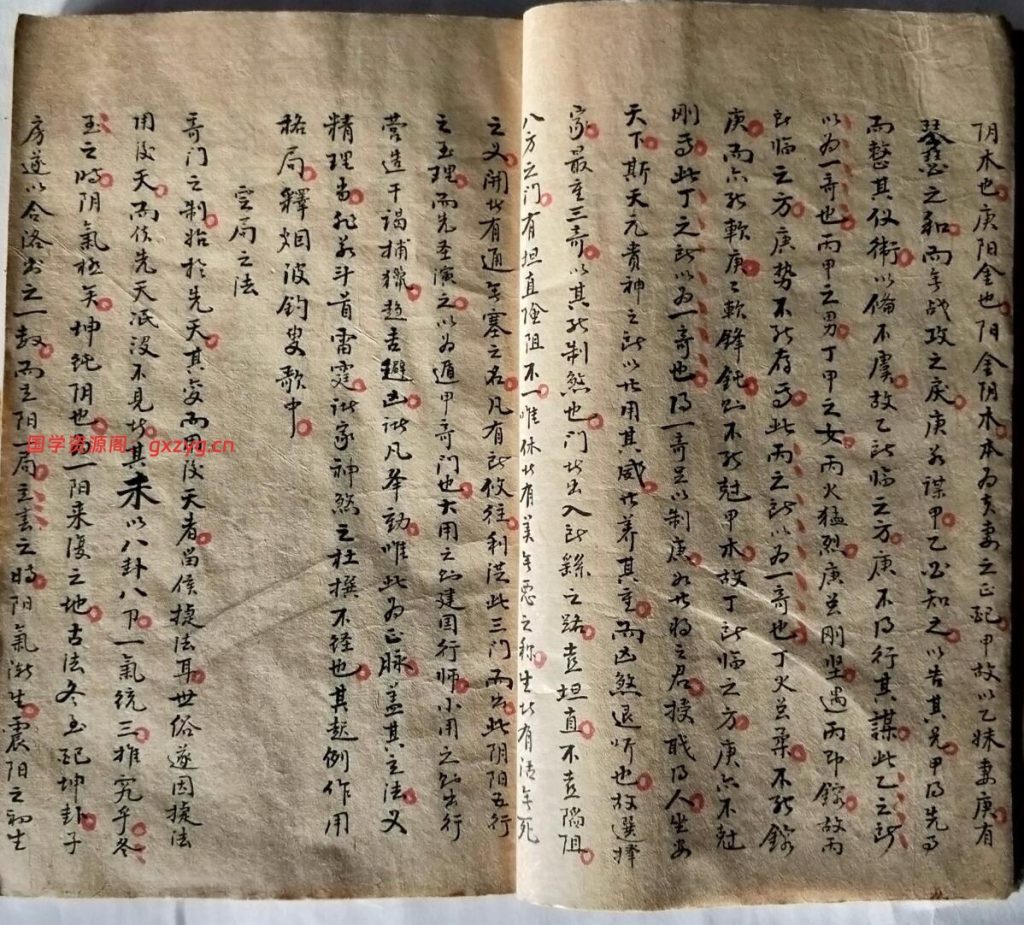 阴木也庚阳金也阳金阴木本为夫妻之正配甲故以乙妹妻庚有
琴瑟之和而无战攻之戾庚若谋甲乙必知之以告其兄甲得先为
而整其仪卫以备不虞故乙所临之方庚不得行其谋此乙之所
以为一奇也丙甲之男丁甲之女丙火猛烈庚虽刚坚遇丙即镕故丙
所临之方庚势不能存焉此丙之所以为一奇也丁火虽柔不能镕
庚而亦能软庚庚软锋钝亦不能克甲木故丁所临之方庚亦不克
刚焉此丁之所以为一奇也得一奇足以制庚如此将之君授职得人坐安
天下斯天元贵神之所以此用其威此养其重而凶煞退听也故选择
家最重三奇以其能制煞也门此出入所繇之路喜坦直不喜隔阻
八方之门有坦直险阻不一唯休此有美无恶之称生此有活无死
之义开此有通无塞之名凡有所攸往利从此三门而出此阴阳五行
之至理而先圣演之以为遁甲奇门也大用之则建国行师小用之则出行
营造干谒捕猎趋吉避凶此凡举动唯此为正脉盖其立法又
精理当非若斗首雷霆诸家神煞之杜撰不经也其起例作用
秘局释烟波钓叟歌中
定局之法
奇门之制始于先天其变而用后天者当侯捷法耳世俗遂因捷法
用后天而侯先天泯没不见此其未以八卦八节一气统三推究乎冬
至之时阴气极矣坤纯阴也为一阳来复之地古法冬至配坤卦子
房遂以合洛书之一数而立阳一局立春之时阳气渐生震阳之初生
国学资源阁 gxzyg.cn